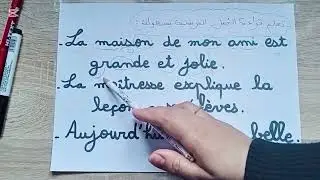 - La maison de mon ami est
grande et jolie.
- La maîtresse explique la
leçon
- Aujourd'hui belle.